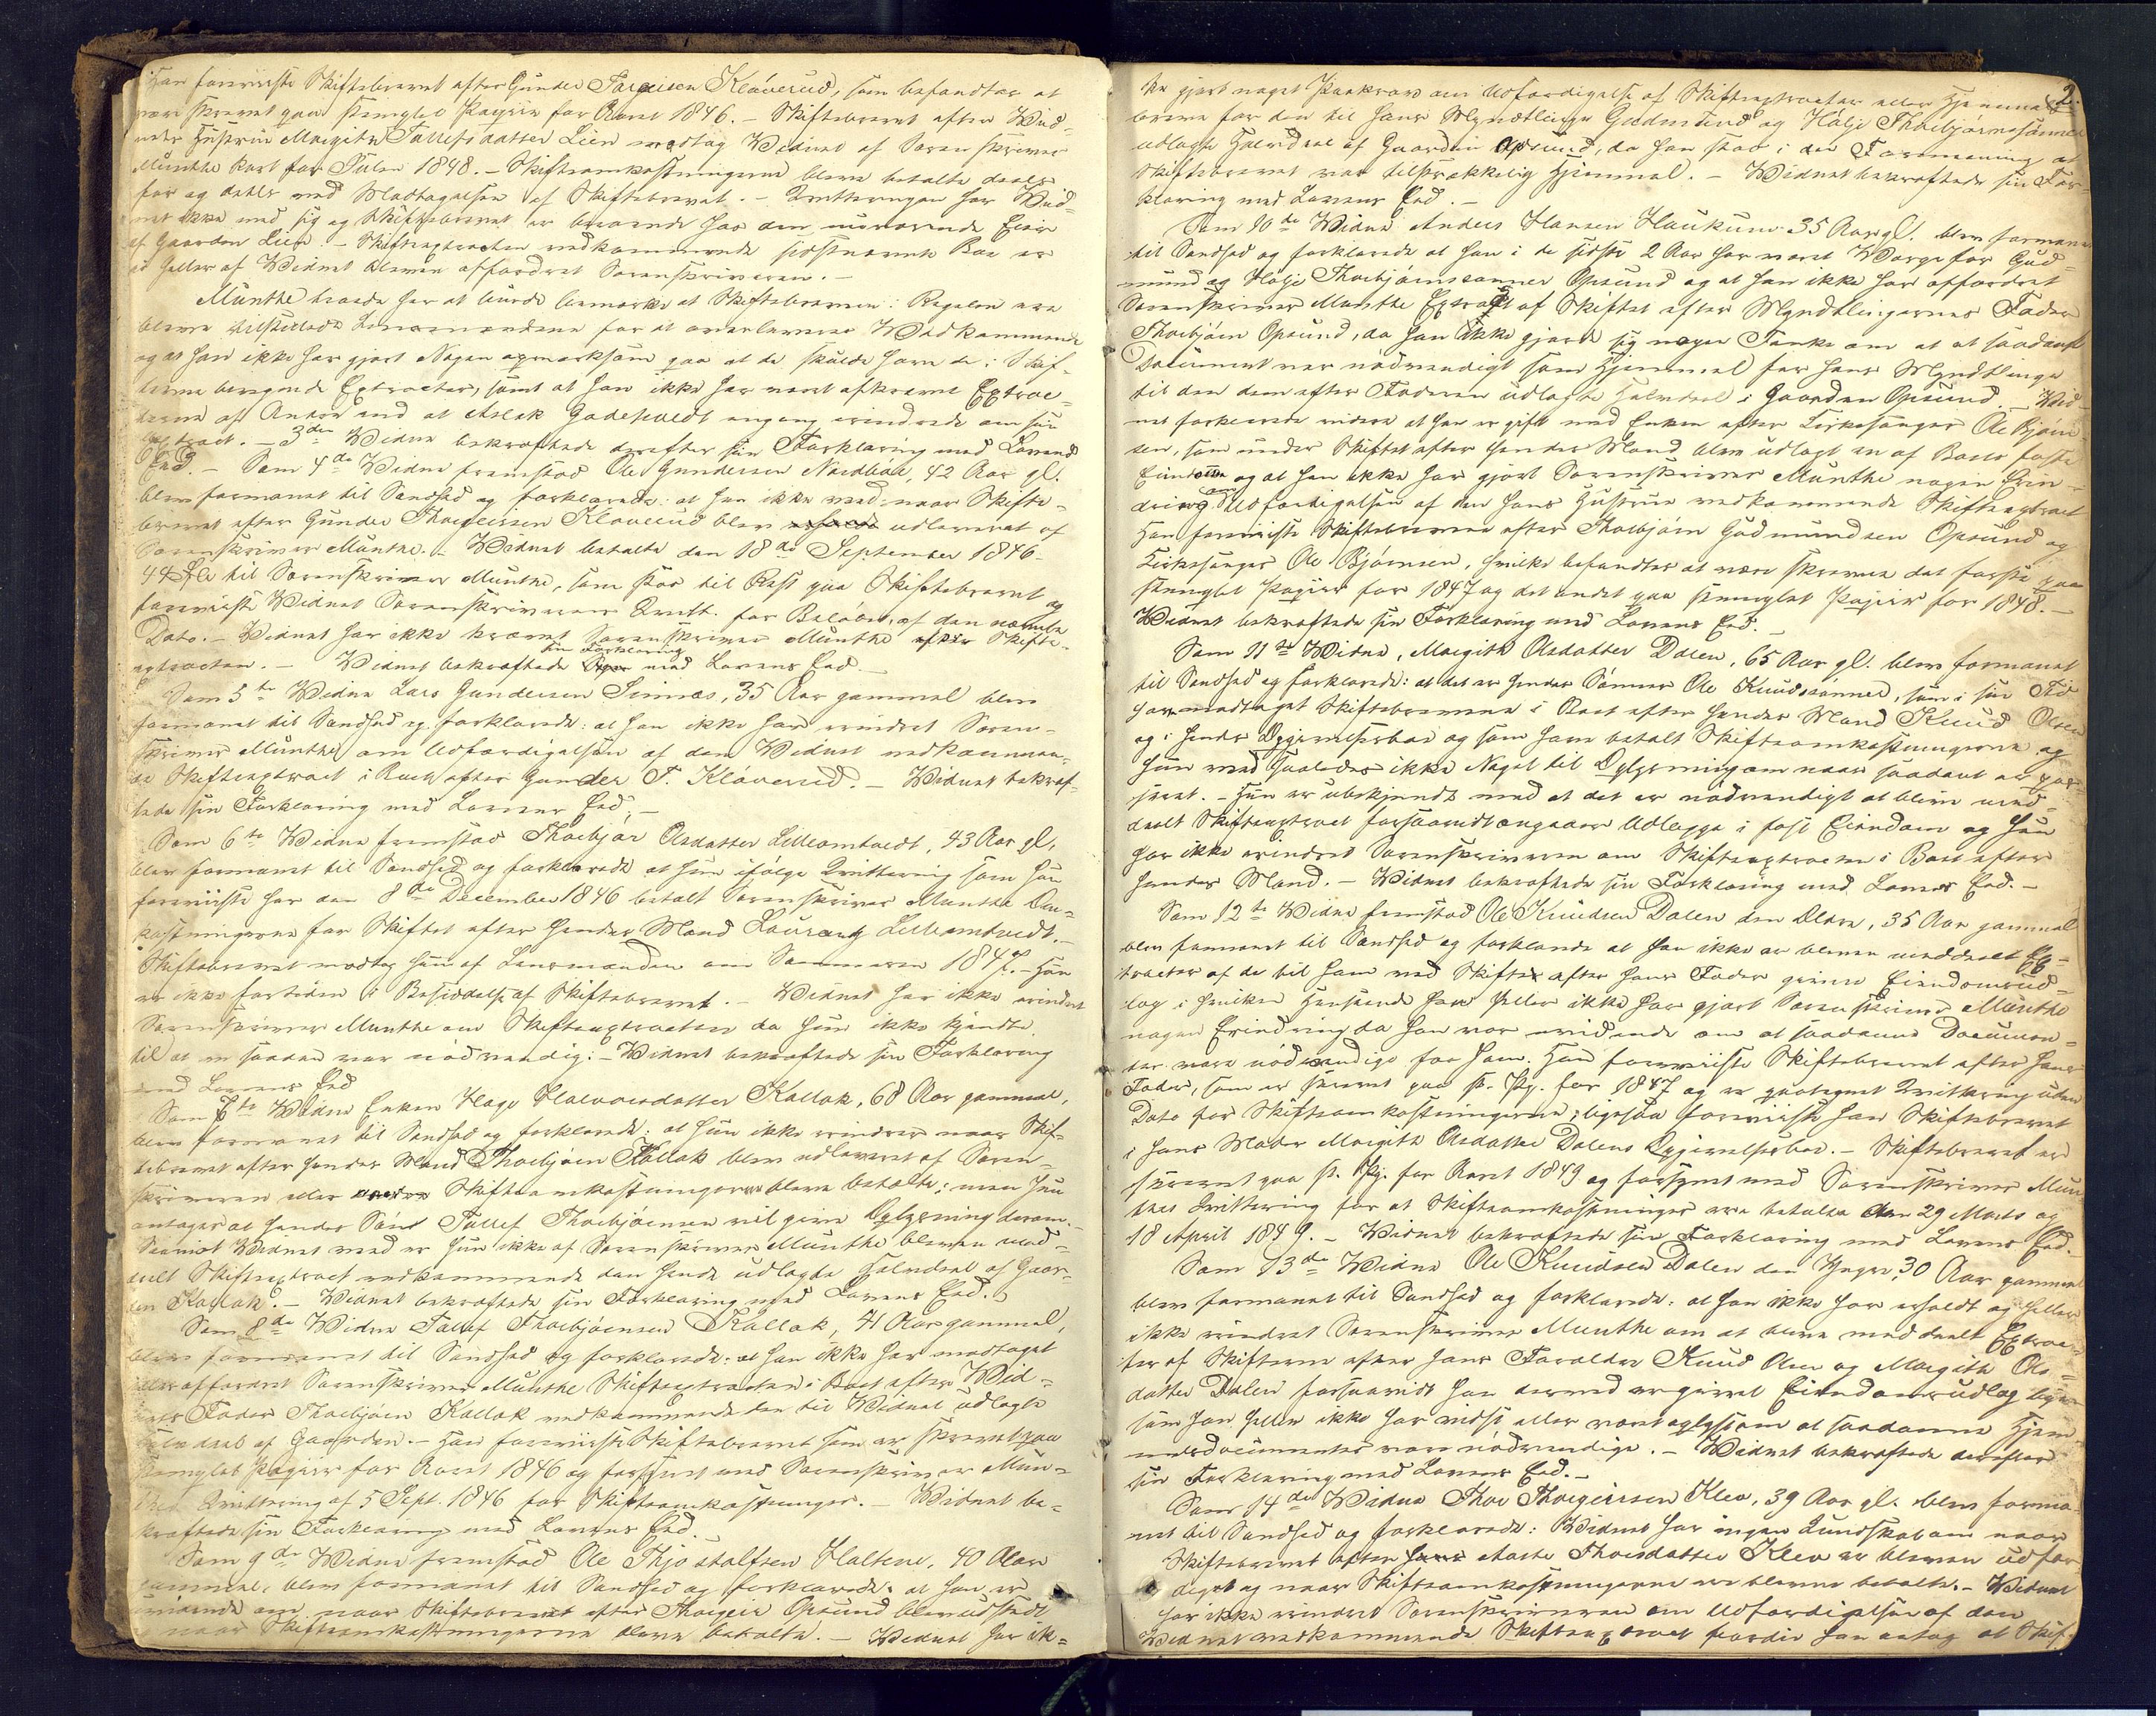 Han foreviiste Skiftebrevet efter Gunder Torgeirsen Kløverud, som befandtes at
være skrevet paa stemplet Papiir for Aaret 1846. - Skiftebrevet efter Wid-
nets Hustru Margith Tallefsdatter Lien modtog Widnet af Sorenskriver
Munthe kort før Julen 1848. - Skifteomkostningerne bleve betalte deels
før og deels ved Modtagelsen af Skiftebrevet. - Qvitteringen har Wid-
net ikke med sig og Skiftebrevet er beroende hos den nuværende Eier
af Gaarden Lien. - Skifteextracten vedkommende sidstnævnte Boe er
ei heller af Widnet bleven affordret Sorenskriveren. -
Munthe troede her at burde bemærke at Skiftebrevene i Regelen ere
blevne tilstillede Lensmændene for at overleveres Wedkommende
og at han ikke har gjort Nogen opmærksom paa at de skulde have de i Skif-
terne beroende Extracter, samt at han ikke har været afkrævet Extrac-
terne af Andre end at Aslak Godtholdt engang erindrede om sin
Extract. - 3die Widne bekræftede derefter sin Forklaring med Lovens
Eed. - Som 4de Widne fremstod Ole Gundersen Nordbøe, 42 Aar gl.
blev formanet til Sandhed og forklarede: at han ikke veed naar Skifte-
brevet efter Gunder Thorgeirsen Kløverud blev udleveret af
Sorenskriver Munthe. - Widnet betalte den 18de September 1846
44 til Sorenskriver Munthe, som stod til Rest paa Skiftebrevet og
foreviiste Widnet Sorenskriverens Qvitt. for Beløbet, af den nævnte
Dato. - Widnet har ikke krævet Sorenskriver Munthe efter Skifte-
extracten. - Widnet bekræftede sin Forklaring med Lovens Eed. -
Som 5te Widne Lars Gundersen Sinnes, 35 Aar gammel blev
formanet til Sandhed og forklarede: at han ikke har erindret Soren-
skriver Munthe om Udfærdigelsen af den Widnet vedkommen-
de Skifteextract i Boet efter Gunder T. Kløverud. - Widnet bekræf-
tede sin Forklaring med Lovens Eed. -
Som 6te Widne fremstod Thorbjør Olsdatter Lilleomtvedt, 43 Aar gl,
blev formanet til Sandhed og forklarede at hun ifølge Qvittering som hun
foreviiste har den 8de December 1846 betalt Sorenskriver Munthe Om-
kostningerne for Skiftet efter hendes Mand Lilleomtvedt. -
Skiftebrevet modtog hun af Lensmanden om Sommeren 1847. - Hun
er ikke fortiden i Besiddelse af Skiftebrevet. - Widnet har ikke erindret
Sorenskriver Munthe om Skifteextracten da hun ikke kjendte
til at en saadan var nødvendig. - Widnet bekræftede sin Forklaring
med Lovens Eed
Som 7de Widne Enken Hæge Halvorsdatter Kallak, 68 Aar gammel,
blev formanet til Sandhed og forklarede: at hun ikke erindrer naar Skif-
tebrevet efter hendes Mand Thorbjørn Kallak blev udleveret af Soren-
skriveren eller Skifteomkostningerne bleve betalte; men hun
antager at hendes Søn Tallef Thorbjørnsen vil give Oplysning derom. -
Saavidt Widnet veed er hun ikke af Sorenskriver Munthe bleven med-
deelt Skifteextract vedkommende den hende udlagte Halvdeel af Gaar-
den Kallak. - Widnet bekræftede sin Forklaring med Lovens Eed. -
Som 8de Widne Tallef Thorbjørnsen Kallak, 41 Aar gammel,
blev formanet til Sandhed og forklarede: at han ikke har modtaget
eller affordret Sorenskriver Munthe Skifteextracten i Boet efter Wid-
nets Fader Thorbjørn Kallak vedkommende den til Widnet udlagte
Halvdeel af Gaarden. - Han foreviiste Skiftebrevet som er skrevet paa
stemplet Papiir for Aaret 1846 og forsynet med Sorenskriver Mun-
thes Qvittering af 5 Sept. 1846 for Skifteomkostninger. - Widnet be-
kræftede sin Forklaring med Lovens Eed. -
Som 9de Widne fremstod Ole Thjostolfsen Haltene, 40 Aar
gammel, blev formanet til Sandhed og forklarede: at han er
uvidende om naar Skiftebrevet efter Thorgeir Opsund blev udstedt
naar Skifteomkostningerne bleve betalte. - Widnet har ik-
2.
ke gjort noget Paakrav om Udfærdigelse af Skifteextracter eller Hjemmels-
breve for den til hans Myndtlinge Gudmund og Hølje Thorbjørnssønner
udlagte Halvdeel af Gaarden Opsund, da han stod i den Formening at
Skiftebrevet var tilstrækkelig Hjemmel. - Widnet bekræftede sin For-
klaring med Lovens Eed. -
Som 10de Widne Anders Hansen Haukum 35 Aar gl. blev formanet
til Sandhed og forklarede at han i de sidste 2 Aar har været Værge for Gud-
mund og Hølje Thorbjørnssønner Opsund og at han ikke har affordret
Sorenskriver Munthe Extract af Skiftet efter Myndtlingernes Fader
Thorbjørn Opsund, da han ikke gjorde sig nogen Tanke om at et saadant
Document var nødvendigt som Hjemmel for hans Myndtlinge
til den dem efter Faderen udlagte Halvdeel i Gaarden Opsund. - Wid-
net forklarede videre at han er gift med Enken efter Kirkesanger Ole Bjørn-
sen, som under Skiftet efter hendes Mand blev udlagt en af Boets faste
Eiendomme og at han ikke har gjort Sorenskriver Munthe nogen Erin-
dring om Udfærdigelsen af den hans Hustrue vedkommende Skifteextract
Han foreviiste Skiftebrevene efter Thorbjørn Gudmundsen Opsund og
Kirkesanger Ole Bjørnsen, hvilke befandtes at være skrevne det første paa
stemplet Papiir for 1847 og det andet paa stemplet Papiir for 1848. -
Widnet bekræftede sin Forklaring med Lovens Eed. -
Som 11te Widne, Margith Olsdatter Dalen, 65 Aar gl. blev formanet
til Sandhed og forklarede: at det er hendes Sønner Ole Knudssønner, som i sin Tid
har modtaget Skiftebrevene i Boet efter hendes Mand Knud Olsen
og i hendes Opgivelsesboe og som have betalt Skifteomkostningerne og
hun veed saaledes ikke Noget til Oplysning om naar saadant er pas-
seret. - Hun er ubekjendt med at det er nødvendigt at blive med-
deelt Skifteextract forsaavidt angaaer Udlægge i fast Eiendom og hun
har ikke erindret Sorenskriveren om Skifteextracten i Boet efter
hendes Mand. - Widnet bekræftede sin Forklaring med Lovens Eed. -
Som 12te Widne fremstod Ole Knudsen Dalen den Ældre, 35 Aar gammel
blev formanet til Sandhed og forklarede at han ikke er bleven meddeelt Ex-
tracter af de til ham ved Skiftet efter hans Fader givne Eiendomsud-
læg i hvilken Henseende han heller ikke har gjort Sorenskriver Munthe
nogen Erindring da han var uvidende om at saadanne Documen-
ter vare nødvendige for ham. Han foreviiste Skiftebrevet efter hans
Fader, som er skrevet paa st. Pp. for 1847 og er paategnet Qvittering uden
Dato for Skifteomkostningerne; ligesaa foreviiste han Skiftebrevet
i hans Moder Margith Olsdatter Dalens Opgivelsesboe. - Skiftebrevet er
skrevet paa st. Pp. for Aaret 1849 og forsynet med Sorenskriver Mun
thes Qvittering for at Skifteomkostninger ere betalte den 29 Marts og
18 April 1849. - Widnet bekræftede sin Forklaring med Lovens Eed. -
Som 13de Widne Ole Knudsen Dalen den Yngre, 30 Aar gammel
blev formanet til Sandhed og forklarede: at han ikke har erholdt og heller
ikke erindret Sorenskriver Munthe om at blive meddeelt Extrac-
ter af Skifterne efter hans Forældre Knud Olsen og Margith Ols-
datter Dalen forsaavidt han derved er givet Eiendomsudlæg lige-
som han heller ikke har vidst eller været oplyst om at saadanne Hjem-
melsdocumenter vare nødvendige. - Widnet bekræftede derefter
sin Forklaring med Lovens Eed. -
Som 14de Widne Thor Thorgeirsen Klev, 39 Aar gl. blev forma-
net til Sandhed og forklarede: Widnet har ingen Kundskab om naar
Skiftebrevet efter Aaste Thorsdatter Klev er bleven udfær
diget og naar Skifteomkostningerne ere blevne betalte. - Widnet
har ikke erindret Sorenskriveren om Udfærdigelsen af den
Widnet vedkommende Skifteextract fordi han antog at Skif-